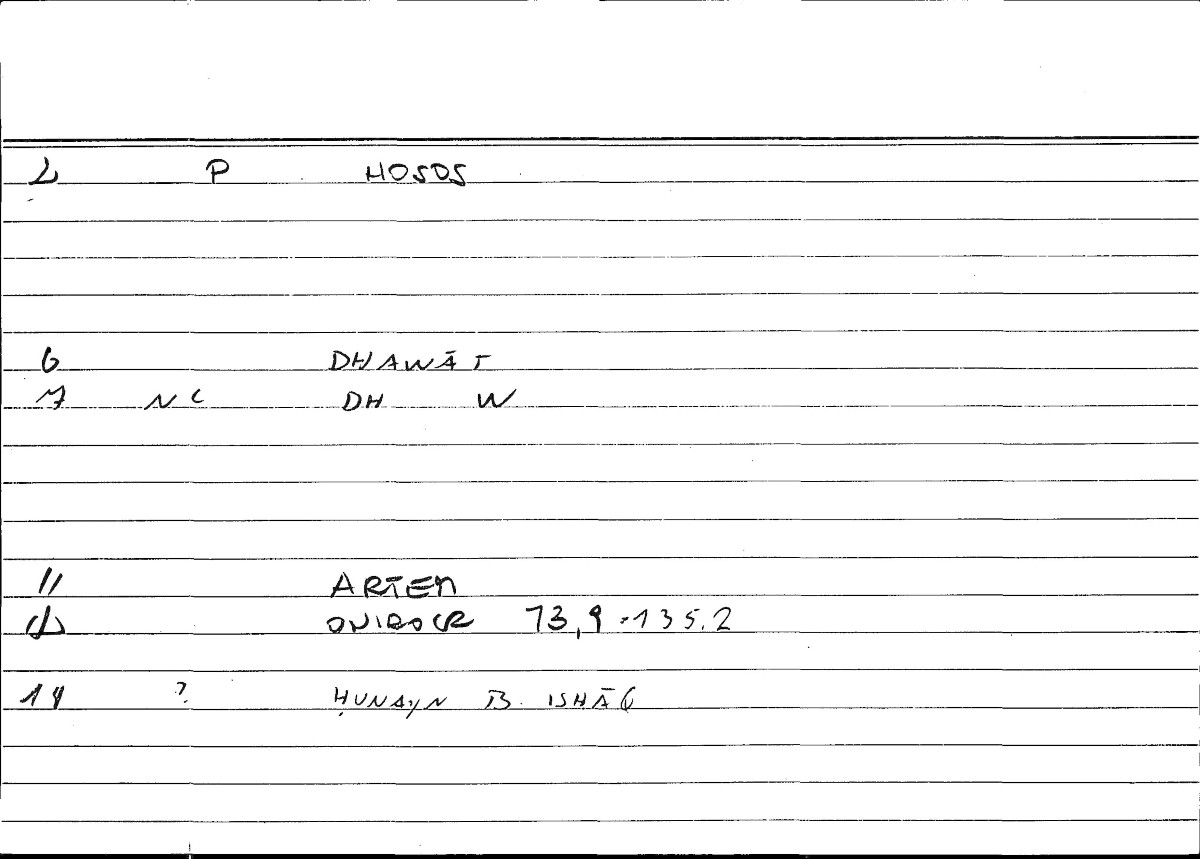 2 P HOSOS
6 DHAWĀT
7 NC DH W
11 ARTEM
12 ONIROCR 73,9-135.2
14 ? ḤUNAYN B. ISHĀQ